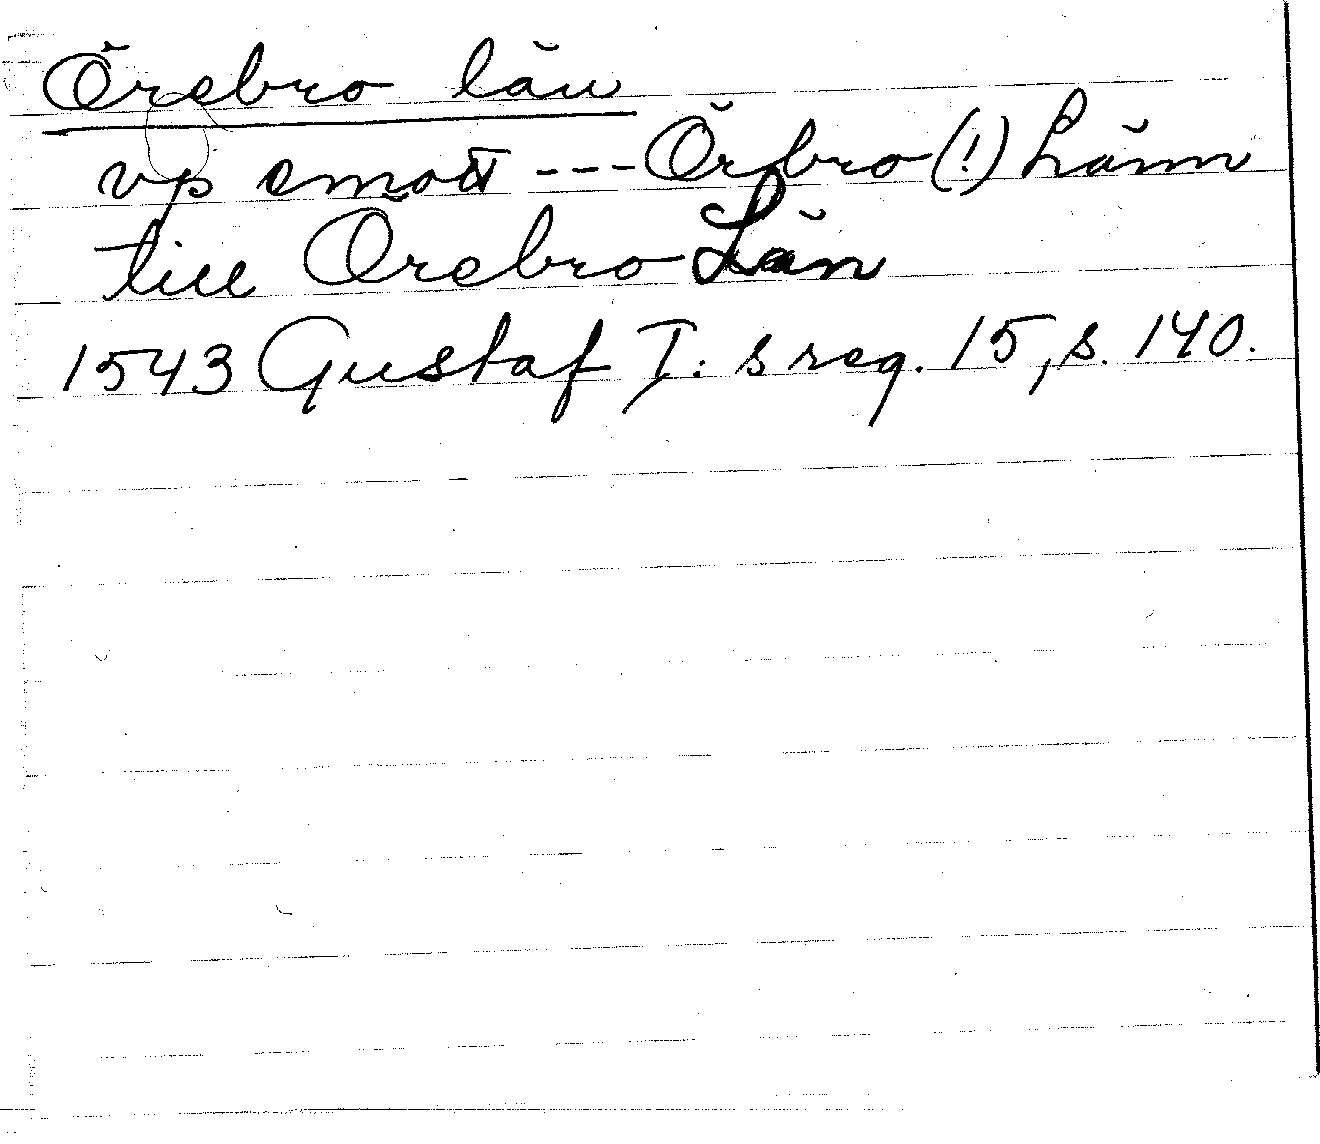 Örebro län
vp emott --- Örbro (!) Länn
till Örebro Län
1543 Gustaf I: s reg. 15, s. 140.